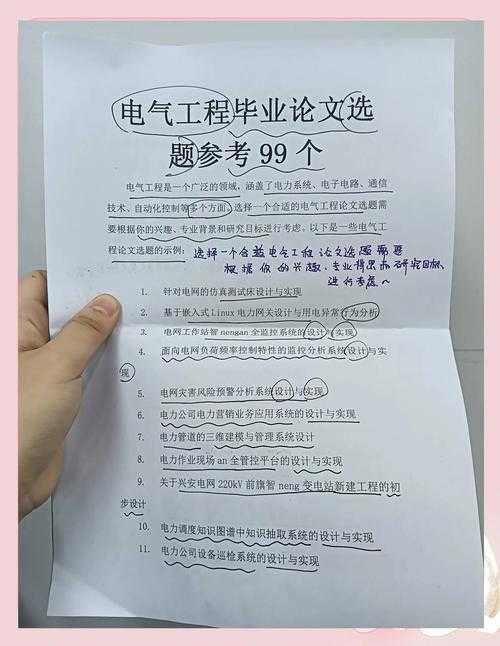 电气工程毕业论文选
题参考 99 个
电气工程是一个广泛的领域，涵盖了电力系统、电子电路、通信
技术、自动化控制等多个方面。选择一个合适的电气工程论文选题需
要根据你的兴趣、专业背景和研究目标进行考虑。以下是一些电气工
程论文选题的示例：
选择一个合适电气工程论文选题需要
根据你的兴趣、专业背景和研究目标
进行考虑～
1. 针对电网的仿真测试床设计与实现
2. 基于嵌入式 Linux 电力网关设计与用电异常行为分析
3. 电网工作站智 nengan 全监控系统的设计与实现
4. 面向电网负荷频率控制特性的监控分析系统设计与实
现
5. 电网灾害风险预警分析系统设计与实现
6. 电力公司电力营销业务应用系统的设计与实现
7. 电力管道的三维建模与管理系统设计
8. 电力作业现场 an 全管控平台的设计与实现
9. 关于兴安电网 220kV 前旗智 neng 变电站新建工程的初
步设计
10. 电力调度知识图谱中知识抽取系统的设计与实现
11. 电力公司设备巡检系统的设计与实现